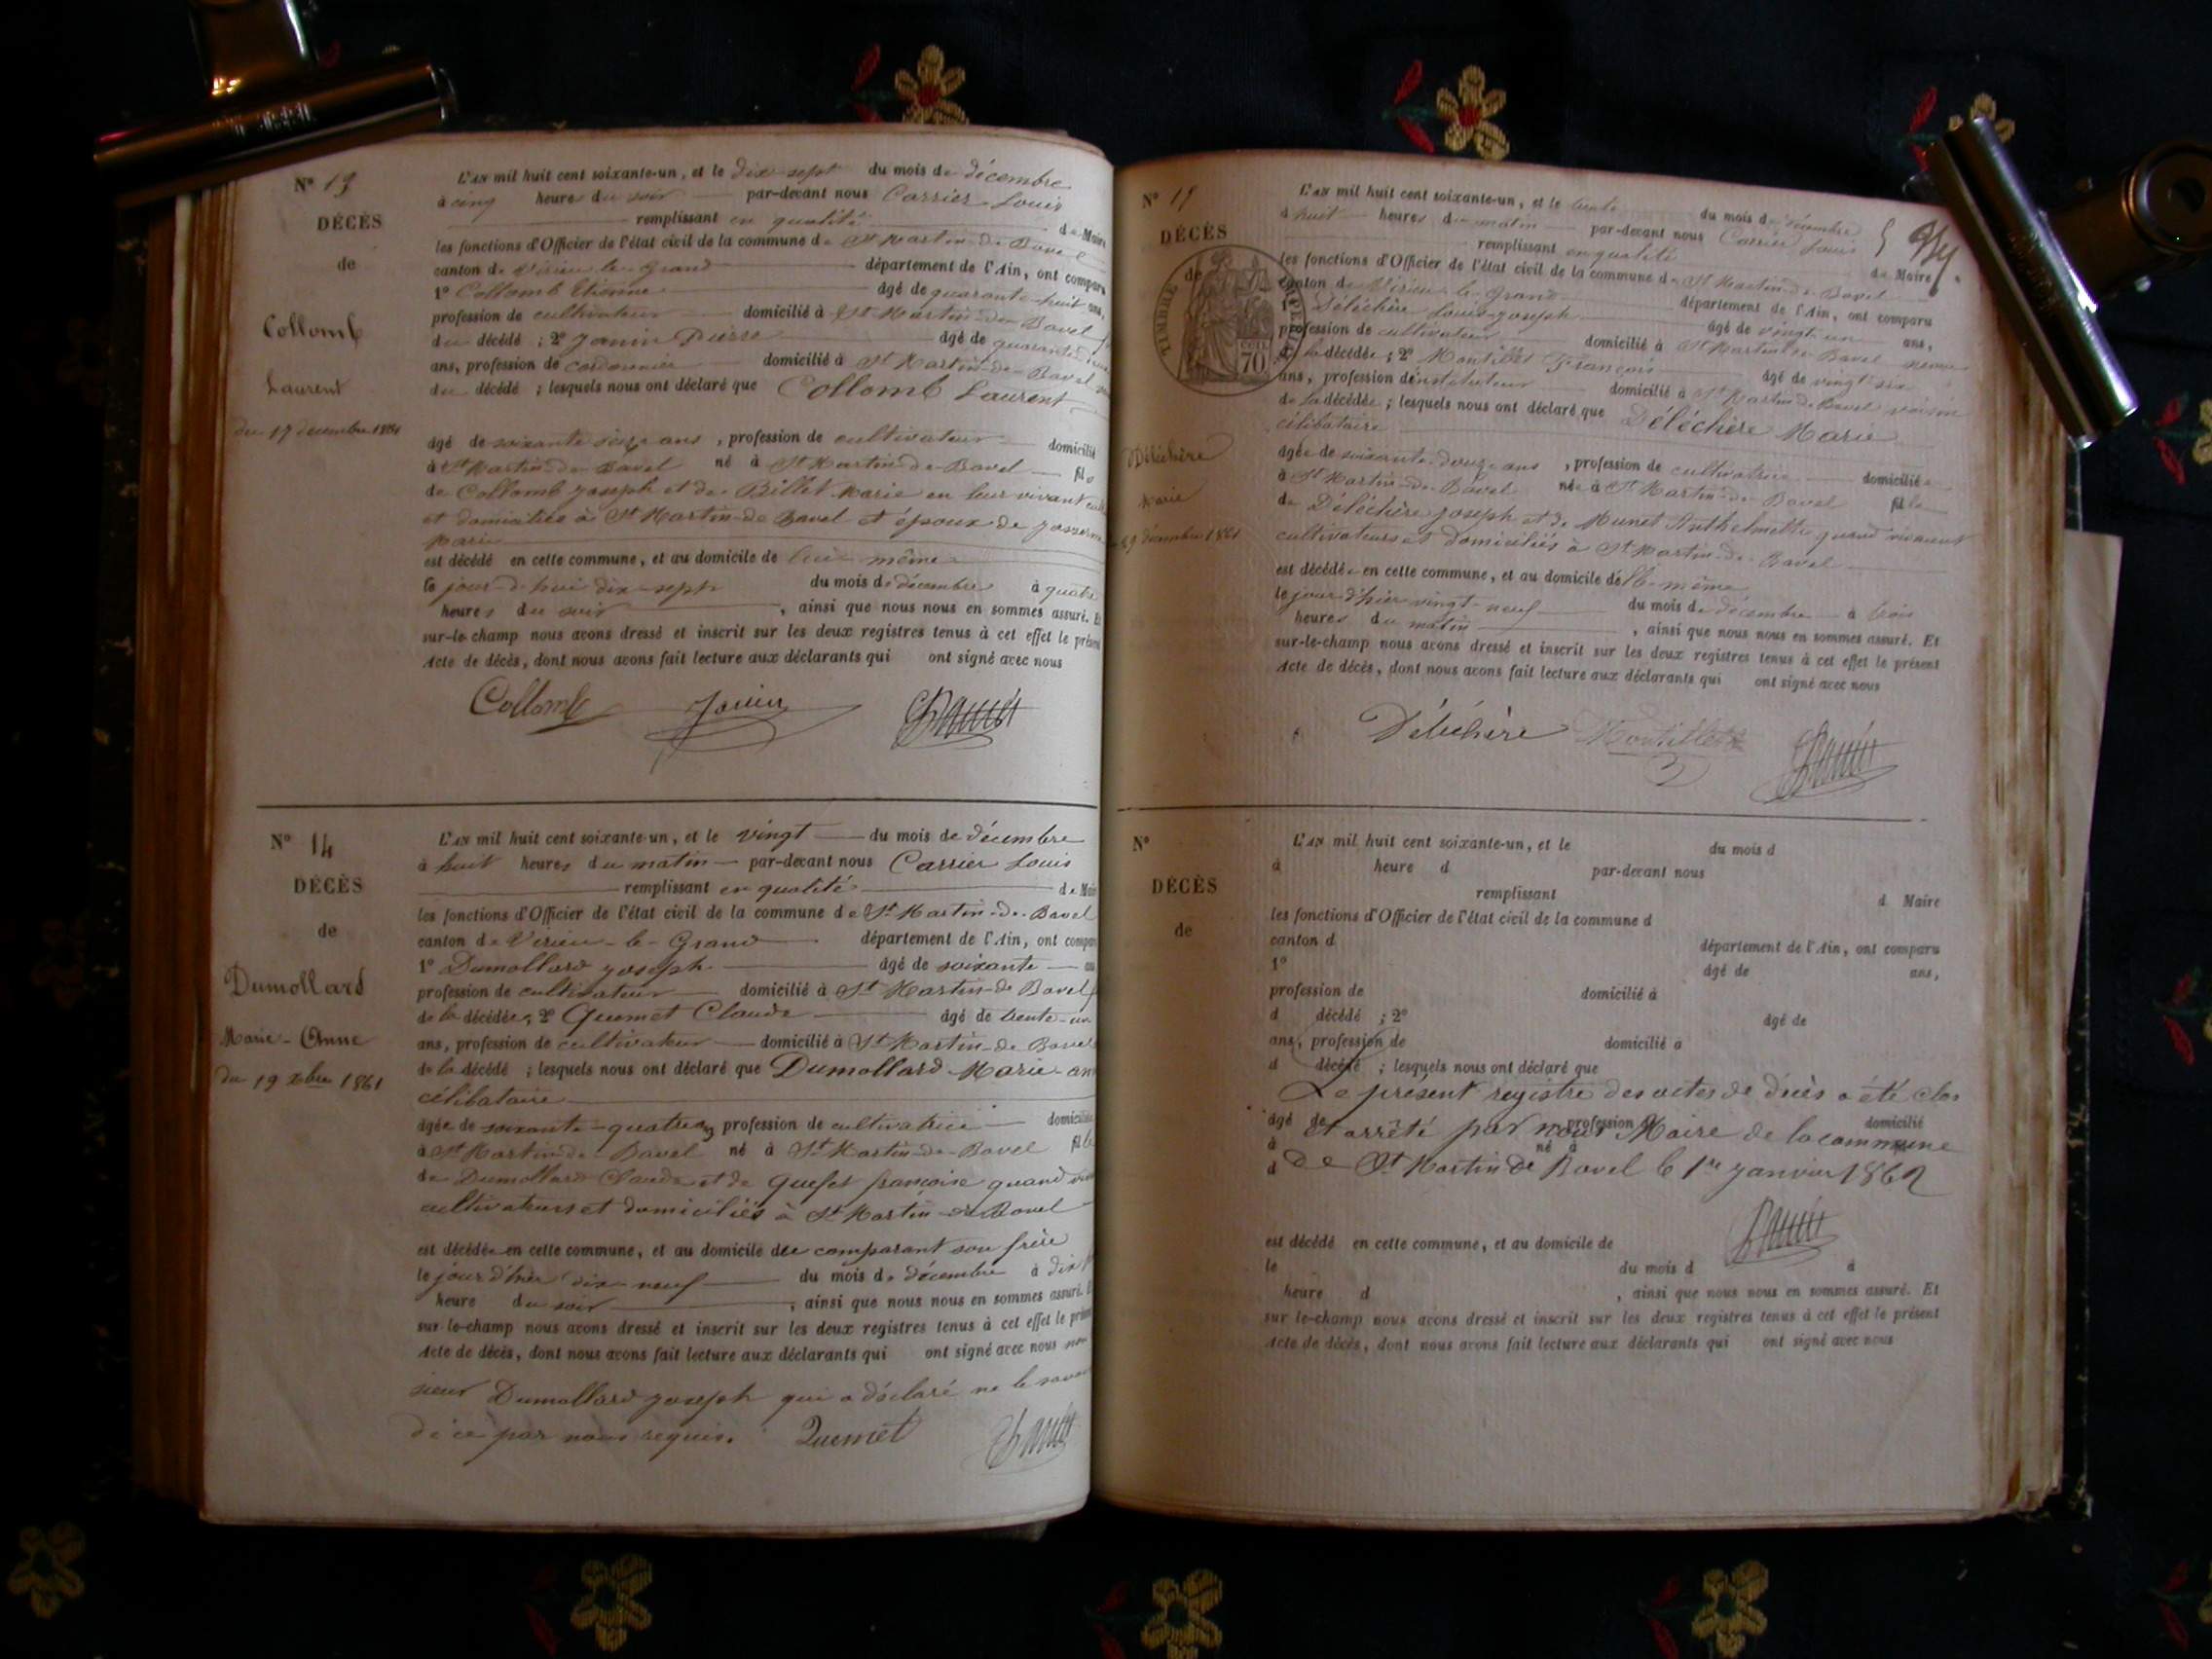 N° 13
DÉCÈS
de
Collomb
Laurent
du 17 décembre 1861
L'AN mil huit cent soixante-un, et le dix-sept du mois de décembre
à cinq heures du soir par-devant nous Carrier Louis
remplissant en qualité de Maire
les fonctions d'Officier de l'état civil de la commune de St Martin-de-Bavel
canton de Virieu-le-Grand département de l'Ain, ont comparu
1° Collomb Etienne âgé de quarante-huit ans,
profession de cultivateur domicilié à St Martin-de-Bavel
du décédé ; 2° Janin Pierre âgé de quarante
ans, profession de cordonnier domicilié à St Martin-de-Bavel
du décédé ; lesquels nous ont déclaré que Collomb Laurent
âgé de soixante ans, profession de cultivateur domicilié
à St Martin-de-Bavel né à St Martin-de-Bavel fils
de Collomb Joseph et de Billet Marie en leur vivant
et domiciliés à St Martin-de-Bavel et époux de
Marie
est décédé en cette commune, et au domicile de lui-même
le jour-d'hui dix-sept du mois de décembre à quatre
heures du soir, ainsi que nous nous en sommes assuré. Et
sur-le-champ nous avons dressé et inscrit sur les deux registres tenus à cet effet le présent
Acte de décès, dont nous avons fait lecture aux déclarants qui ont signé avec nous
Collomb Janin
N° 14
DÉCÈS
de
Dumollard
Marie-Anne
du 19 Xbre 1861
L'AN mil huit cent soixante-un, et le vingt du mois de décembre
à huit heures du matin par-devant nous Carrier Louis
remplissant en qualité de Maire
les fonctions d'Officier de l'état civil de la commune de St Martin-de-Bavel
canton de Virieu-le-Grand département de l'Ain, ont comparu
1° Dumollard Joseph âgé de soixante
profession de cultivateur domicilié à St Martin-de-Bavel
de la décédée ; 2° Quemet Claude âgé de trente-un
ans, profession de cultivateur domicilié à St Martin-de-Bavel
de la décédé ; lesquels nous ont déclaré que Dumollard Marie-an
célibataire
âgée de soixante-quatre profession de cultivatrice domiciliée
à St Martin-de-Bavel né à St Martin-de-Bavel fille
de Dumollard Claude et de françoise quand
cultivateurs et domiciliés à St Martin-de-Bavel
est décédée en cette commune, et au domicile du comparant son frère
le jour d'hier dix-neuf du mois de décembre à dix
heure du soir, ainsi que nous nous en sommes assuré. Et
sur-le-champ nous avons dressé et inscrit sur les deux registres tenus à cet effet le présent
Acte de décès, dont nous avons fait lecture aux déclarants qui ont signé avec nous non
sieur Dumollard Joseph qui a déclaré ne le savoir
de ce par nous requis. Quemet
N° 15
DÉCÈS
de
TIMBRE IMPERIAL
CEN. 70
Déléchère
Marie
29 décembre 1861
L'AN mil huit cent soixante-un, et le trente du mois de décembre
à huit heures du matin par-devant nous Carrier Louis
remplissant en qualité de Maire
les fonctions d'Officier de l'état civil de la commune de St Martin-de-Bavel
canton de Virieu-le-Grand département de l'Ain, ont comparu
1° Déléchère Louis-Joseph âgé de vingt-un ans,
profession de cultivateur domicilié à St Martin-de-Bavel neveu
de la décédée ; 2° Montillet François âgé de vingt-six
ans, profession d'instituteur domicilié à St Martin-de-Bavel voisin
de la décédée ; lesquels nous ont déclaré que Déléchère Marie
célibataire
âgée de soixante-douze ans, profession de cultivatrice domiciliée
à St Martin-de-Bavel née à St Martin-de-Bavel fille
de Déléchère Joseph et de Munet Anthelmette quand vivaient
cultivateurs et domiciliés à St Martin-de-Bavel
est décédée en cette commune, et au domicile d'elle-même
le jour d'hier vingt-neuf du mois de décembre à trois
heures du matin, ainsi que nous nous en sommes assuré. Et
sur-le-champ nous avons dressé et inscrit sur les deux registres tenus à cet effet le présent
Acte de décès, dont nous avons fait lecture aux déclarants qui ont signé avec nous
Déléchère Montillet
N°
DÉCÈS
de
L'AN mil huit cent soixante-un, et le du mois d
à heure d par-devant nous
remplissant d Maire
les fonctions d'Officier de l'état civil de la commune d
canton d département de l'Ain, ont comparu
1° âgé de ans,
profession de domicilié à
d décédé ; 2° âgé de
ans, profession de domicilié à
d décédé ; lesquels nous ont déclaré que
Le présent registre des actes de décès a été clos
âgé de profession domicilié
et arrêté par nous Maire de la commune
à né à
d de St Martin de Bavel le 1er Janvier 1862
est décédé en cette commune, et au domicile de
le du mois d à
heure d , ainsi que nous nous en sommes assuré. Et
sur-le-champ nous avons dressé et inscrit sur les deux registres tenus à cet effet le présent
Acte de décès, dont nous avons fait lecture aux déclarants qui ont signé avec nous